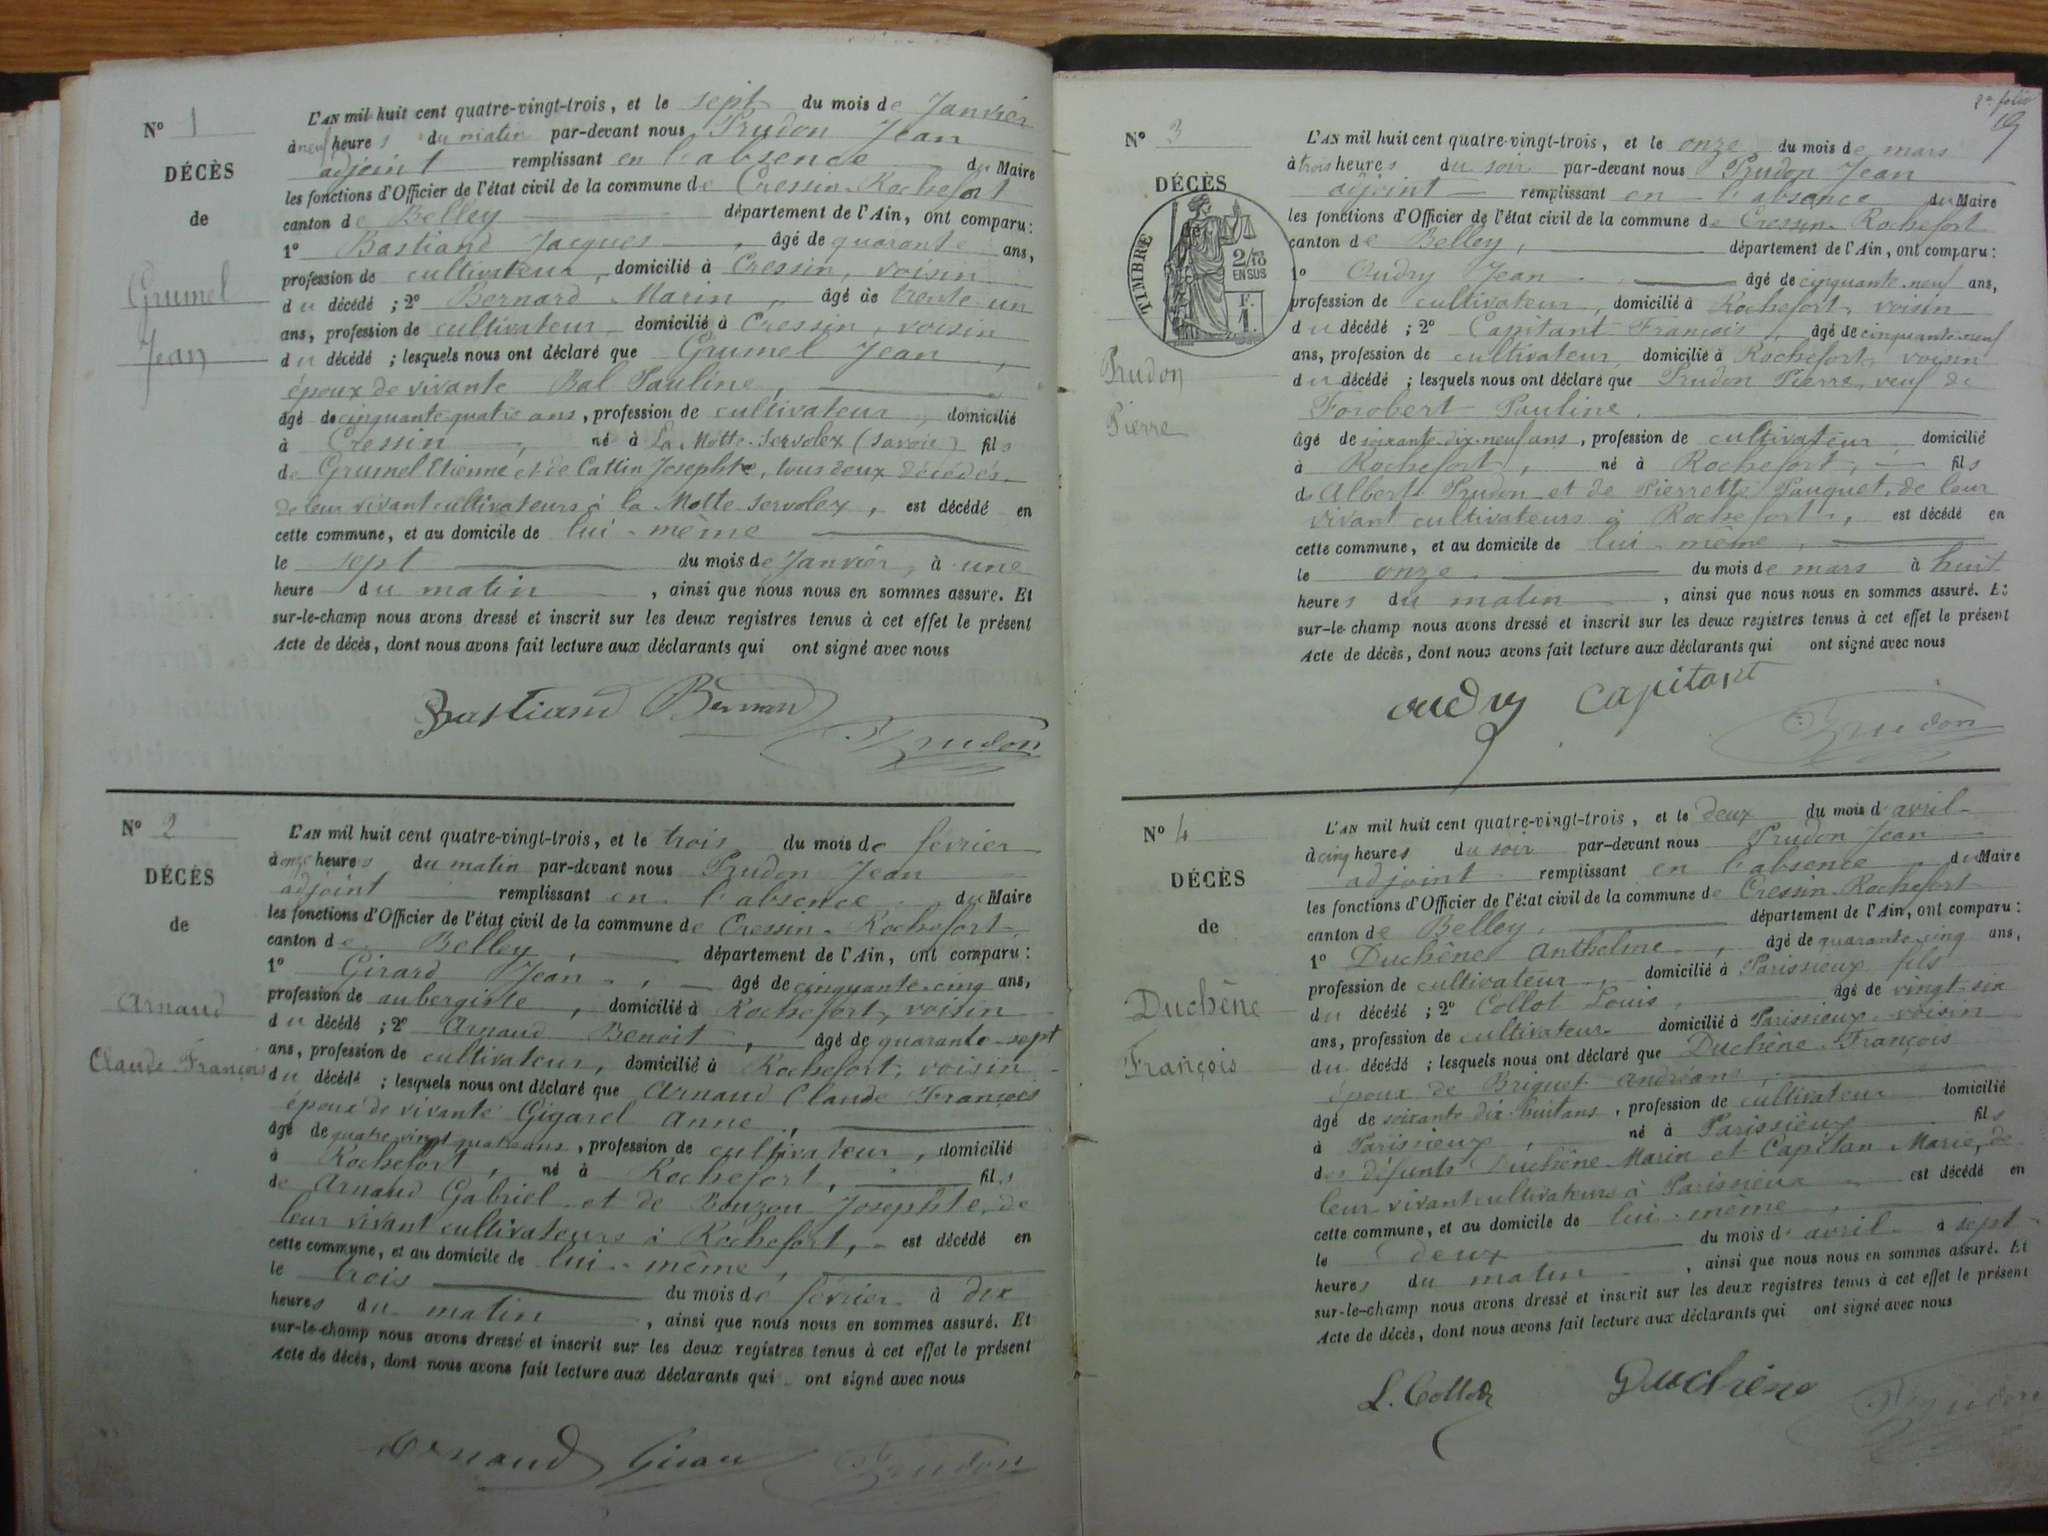 Nº 1
DÉCÈS
de
Grumel
Jean
L'AN mil huit cent quatre-vingt-trois, et le sept du mois de Janvier
à neuf heures du matin par-devant nous Prudon Jean
adjoint remplissant en l'absence du Maire
les fonctions d'Officier de l'état civil de la commune de Cressin-Rochefort
canton de Belley département de l'Ain, ont comparu :
1º Bastiand Jacques, âgé de quarante ans,
profession de cultivateur, domicilié à Cressin, voisin
du décédé ; 2º Bernard Marin, âgé de trente un
ans, profession de cultivateur domicilié à Cressin, voisin
du décédé ; lesquels nous ont déclaré que Grumel Jean,
époux de vivante Bal Pauline,
âgé de cinquante quatre ans, profession de cultivateur, domicilié
à Cressin, né à La Motte-Servolex (Savoie) fils
de Grumel Etienne et de Cattin Josephte, tous deux décédés
de leur vivant cultivateurs à la Motte Servolex, est décédé en
cette commune, et au domicile de lui-même
le sept du mois de Janvier, à une
heure du matin, ainsi que nous nous en sommes assuré. Et
sur-le-champ nous avons dressé et inscrit sur les deux registres tenus à cet effet le présent
Acte de décès, dont nous avons fait lecture aux déclarants qui ont signé avec nous
Bastiand Bernard
Prudon
Nº 2
DÉCÈS
de
Arnaud
Claude François
L'AN mil huit cent quatre-vingt-trois, et le trois du mois de fevrier
à onze heures du matin par-devant nous Prudon Jean
adjoint remplissant en l'absence du Maire
les fonctions d'Officier de l'état civil de la commune de Cressin-Rochefort
canton de Belley, département de l'Ain, ont comparu :
1º Girard Jean, âgé de cinquante-cinq ans,
profession de aubergiste, domicilié à Rochefort, voisin
du décédé ; 2º Arnaud Benoit, âgé de quarante-sept
ans, profession de cultivateur, domicilié à Rochefort, voisin
du décédé ; lesquels nous ont déclaré que Arnaud Claude François
époux de vivante Gigarel Anne,
âgé de quatre vingt quatre ans, profession de cultivateur, domicilié
à Rochefort, né à Rochefort, fils
de Arnaud Gabriel et de Bouzon Josephte, de
leur vivant cultivateurs à Rochefort, est décédé en
cette commune, et au domicile de lui-même,
le trois du mois de fevrier à dix
heures du matin, ainsi que nous nous en sommes assuré. Et
sur-le-champ nous avons dressé et inscrit sur les deux registres tenus à cet effet le présent
Acte de décès, dont nous avons fait lecture aux déclarants qui ont signé avec nous
Arnaud Girard Prudon
2e folio
Nº 3
DÉCÈS
TIMBRE
2/10 EN SUS
F.
1.
Prudon
Pierre
L'AN mil huit cent quatre-vingt-trois, et le onze du mois de mars
à trois heures du soir par-devant nous Prudon Jean
adjoint remplissant en l'absence du Maire
les fonctions d'Officier de l'état civil de la commune de Cressin-Rochefort
canton de Belley, département de l'Ain, ont comparu :
1º Oudry Jean âgé de cinquante-neuf ans,
profession de cultivateur, domicilié à Rochefort, voisin
du décédé ; 2º Capitant François, âgé de cinquante-neuf
ans, profession de cultivateur, domicilié à Rochefort, voisin
du décédé ; lesquels nous ont déclaré que Prudon Pierre, veuf de
Forobert Pauline.
âgé de soixante-dix-neuf ans, profession de cultivateur, domicilié
à Rochefort, né à Rochefort, fils
de Albert Prudon et de Pierrette Pauquet, de leur
vivant cultivateurs à Rochefort, est décédé en
cette commune, et au domicile de lui-même,
le onze du mois de mars à huit
heures du matin, ainsi que nous nous en sommes assuré. Et
sur-le-champ nous avons dressé et inscrit sur les deux registres tenus à cet effet le présent
Acte de décès, dont nous avons fait lecture aux déclarants qui ont signé avec nous
oudry Capitant
Prudon
Nº 4
DÉCÈS
de
Duchêne
François
L'AN mil huit cent quatre-vingt-trois, et le deux du mois d'avril
à cinq heures du soir par-devant nous Prudon Jean
adjoint remplissant en l'absence du Maire
les fonctions d'Officier de l'état civil de la commune de Cressin-Rochefort
canton de Belley, département de l'Ain, ont comparu :
1º Duchêne Anthelme, âgé de quarante-cinq ans,
profession de cultivateur domicilié à Parissieux fils
du décédé ; 2º Collot Louis, âgé de vingt-six
ans, profession de cultivateur domicilié à Parissieux voisin
du décédé ; lesquels nous ont déclaré que Duchêne François
époux de Briquet Andréane,
âgé de soixante dix-huit ans, profession de cultivateur domicilié
à Parissieux, né à Parissieux fils
des défunts Duchêne Marin et Capitan Marie, de
leur vivant cultivateurs à Parissieux est décédé en
cette commune, et au domicile de lui-même,
le deux du mois d'avril à sept
heures du matin, ainsi que nous nous en sommes assuré. Et
sur-le-champ nous avons dressé et inscrit sur les deux registres tenus à cet effet le présent
Acte de décès, dont nous avons fait lecture aux déclarants qui ont signé avec nous
L. Collot Duchêne Prudon